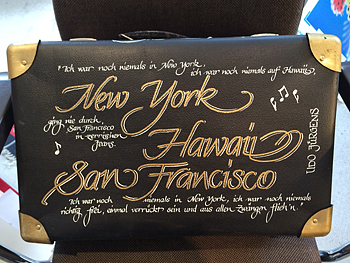 "Ich war noch niemals in New York,
ich war noch niemals auf Hawaii,
New York
ging nie durch
San Francisco
in zerriss'nen
Jeans.
Hawaii
San Francisco
UDO JÜRGENS
Ich war noch niemals in New York, ich war noch niemals
richtig frei, einmal verrückt sein und aus allen Zwängen flieh'n."